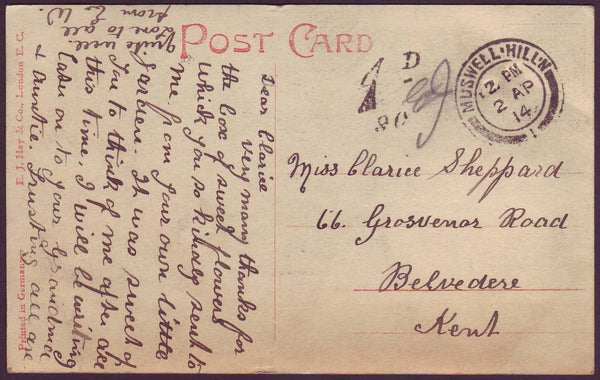 POST CARD
Dear Clarice
very many thanks for
the box of sweet flowers
which you so kindly sent to
me from your own little
garden. It was sweet of
you to think of me after all
this time. I will be writing
later on to your Grandma
& Auntie. Trusting all are
quite well
love to all
from
1D
MUSWELL·HILL·N
12 PM
2 AP
14
1
Miss Clarice Sheppard
66. Grosvenor Road
Belvedere
Kent
E. J. Hey & Co., London E. C.
Printed in Germany